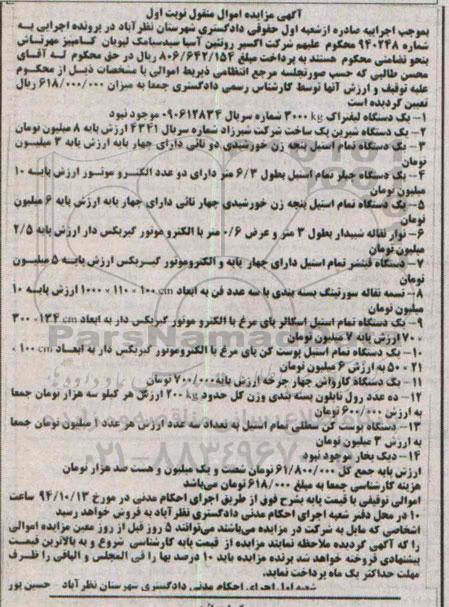 آگهی مزایده اموال منقول نوبت اول
بموجب اجرائیه صادره ازشعبه اول حقوقی دادگستری شهرستان نظرآباد در پرونده اجرایی به
شماره ۹۴۰۲۴۸ محکوم علیهم شرکت اکسیر روتئین آسیا سیدسیامک لبویان کامبیز مهرتاش
بنحو تضامنی محکوم هستند به پرداخت مبلغ ۸۰۶/۶۴۲/۱۵۴ ریال در حق محکوم له آقای
محسن طالبی که حسب صورتجلسه مرجع انتظامی ذیربط اموالی با مشخصات ذیل از محکوم
علیه توقیف و ارزش آنها توسط کارشناس رسمی دادگستری جمعا به میزان ۶۱۸/۰۰۰/۰۰۰ ریال
تعیین گردیده است
۱- یک دستگاه لیفتراک ۳۰۰۰ kg شماره سریال ۰۹۰۶۱۲۸۳۴ موجود نبود
۲- یک دستگاه شیرین پک ساخت شرکت شیرزاد شماره سریال ۴۳۴۱ ارزش پایه ۸ میلیون تومان
۳- یک دستگاه تمام استیل پنجه زن خورشیدی دو تائی دارای چهار پایه ارزش پایه ۳ میلیون
تومان
۴- یک دستگاه چیلر تمام استیل بطول ۶/۳ متر دارای دو عدد الکترو موتور ارزش پایه ۱۰
میلیون تومان
۵- یک دستگاه تمام استیل پنجه زن خورشیدی چهار تائی دارای چهار پایه ارزش پایه ۶ میلیون
تومان
۶- نوار نقاله شیبدار بطول ۳ متر و عرض ۰/۶ متر با الکترو موتور گیربکس دار ارزش پایه ۲/۵
میلیون تومان
۷- دستگاه فیشر تمام استیل دارای چهار پایه و الکتروموتور گیربکس ارزش پایه ۵ میلیون
تومان
۸- تسمه نقاله سورتینگ بسته بندی با سه عدد فن به ابعاد ۱۰۰cm × ۱۱۰ × ۱۰۰۰ ارزش پایه ۱۰
میلیون تومان
۹- یک دستگاه تمام استیل اسکالر پای مرغ با الکترو موتور گیربکس دار به ابعاد ۱۳۴cm × ۳۰۰
۷۰۰ ارزش پایه ۷ میلیون تومان
۱۰- یک دستگاه تمام استیل پوست کن پای مرغ با الکتروموتور گیربکس دار به ابعاد ۱۰۰cm ×
۵۰ × ۲۱ به ارزش ۶ میلیون تومان
۱۱- یک دستگاه کارواش چهار چرخه ارزش پایه ۷۰۰/۰۰۰ تومان
۱۲- ده عدد رول نایلون بسته بندی وزن کل حدود ۲۰۰kg ارزش هر کیلو سه هزار تومان جمعا
به ارزش ۶۰۰/۰۰۰ تومان
۱۳- دستگاه پوست کن سطلی تمام استیل به تعداد سه عدد ارزش هر عدد ۱ میلیون تومان جمعا
به ارزش ۳ میلیون تومان
۱۴- دیگ بخار موجود نبود
ارزش پایه جمع کل ۶۱/۸۰۰/۰۰۰ تومان شصت و یک میلیون و هست صد هزار تومان
هزینه کارشناسی جمعا به مبلغ ۶۱۸/۰۰۰ تومان می‌باشد
اموالی توقیفی با قیمت پایه بشرح فوق از طریق اجرای احکام مدنی در مورخ ۹۴/۱۰/۱۳ ساعت
۱۰ در محل دفتر شعبه اجرای احکام مدنی دادگستری نظرآباد به فروش خواهد رسید
اشخاصی که مایل به شرکت در مزایده می‌باشند می‌توانند ۵ روز قبل از روز معین مزایده اموالی
را که آگهی گردیده ملاحظه نمایند مزایده از قیمت پایه کارشناسی شروع و به بالاترین قیمت
پیشنهادی فروخته خواهد شد برنده مزایده باید ۱۰ درصد بها را فی المجلس و الباقی را ظرف
مهلت حداکثر یک ماه پرداخت نماید.
شعبه اول اجرای احکام مدنی دادگستری شهرستان نظرآباد - حسین پور
ParsNamad
۰۲۱-۸۸۳۴۹۶۷۰